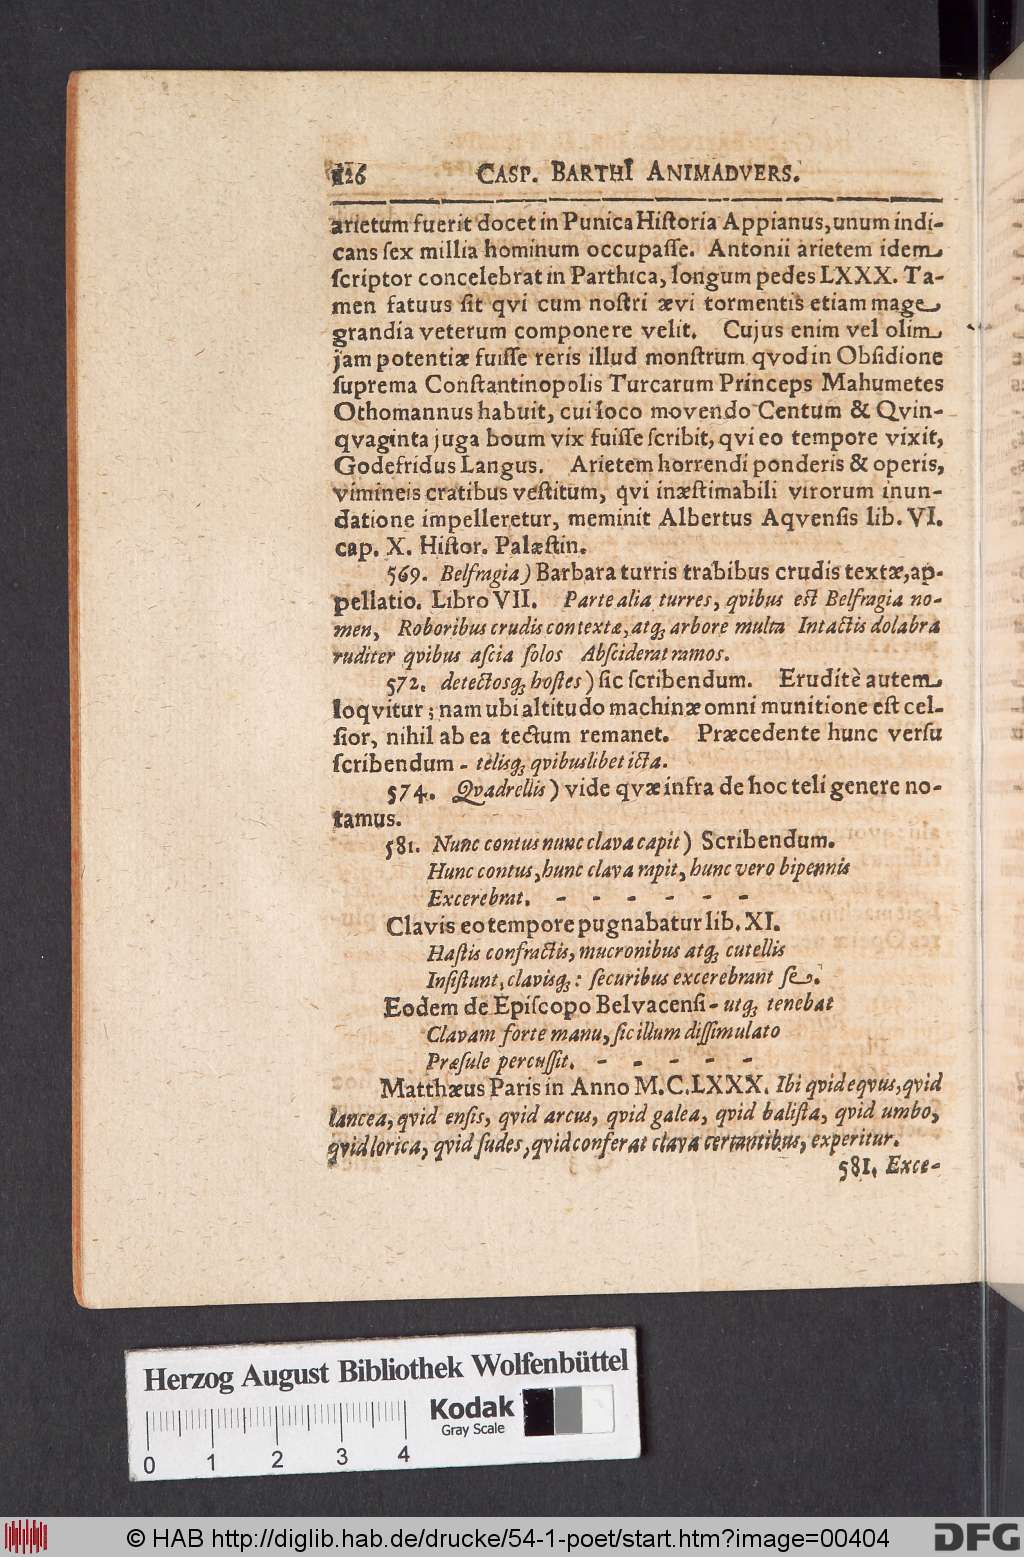 126 CASP. BARTHI ANIMADVERS.
arietum fuerit docet in Punica Hiſtoria Appianus, unum indi-
cans ſex millia hominum occupaſſe. Antonii arietem idem
ſcriptor concelebrat in Parthica, longum pedes LXXX. Ta-
men fatuus ſit qvi cum noſtri ævi tormentis etiam mage
grandia veterum componere velit. Cujus enim vel olim
jam potentiæ fuiſſe reris illud monſtrum qvod in Obſidione
ſuprema Conſtantinopolis Turcarum Princeps Mahumetes
Othomannus habuit, cui loco movendo Centum & Qvin-
qvaginta juga boum vix fuiſſe ſcribit, qvi eo tempore vixit,
Godefridus Langus. Arietem horrendi ponderis & operis,
vimineis cratibus veſtitum, qvi inæſtimabili virorum inun-
datione impelleretur, meminit Albertus Aqvenſis lib. VI.
cap. X. Hiſtor. Palæſtin.
569. Belfragia) Barbara turris trabibus crudis textæ, ap-
pellatio. Libro VII. Parte alia turres, qvibus eſt Belfragia no-
men, Roboribus crudis contextæ, atq; arbore multa Intactis dolabra
ruditer qvibus aſcia ſolos Abſciderat ramos.
572. detectosq; hoſtes) ſic ſcribendum. Eruditè autem
loqvitur; nam ubi altitudo machinæ omni munitione eſt cel-
ſior, nihil ab ea tectum remanet. Præcedente hunc verſu
ſcribendum - telisq; qvibuslibet icta.
574. Qvadrellis) vide qvæ infra de hoc teli genere no-
tamus.
581. Nunc contus nunc clava capit) Scribendum.
Hunc contus, hunc clava rapit, hunc vero bipennis
Excerebrat. - - - - - -
Clavis eo tempore pugnabatur lib. XI.
Haſtis confractis, mucronibus atq; cutellis
Inſiſtunt, clavisq;: ſecuribus excerebrant ſe.
Eodem de Epiſcopo Belvacenſi - utq; tenebat
Clavam forte manu, ſic illum diſſimulato
Præſule percuſſit. - - - - -
Matthæus Paris in Anno M.C.LXXX. Ibi qvid eqvus, qvid
lancea, qvid enſis, qvid arcus, qvid galea, qvid baliſta, qvid umbo,
qvid lorica, qvid ſudes, qvid conferat clava certantibus, experitur.
581. Exce-
Herzog August Bibliothek Wolfenbüttel
Kodak
Gray Scale
0 1 2 3 4
© HAB http://diglib.hab.de/drucke/54-1-poet/start.htm?image=00404
DFG